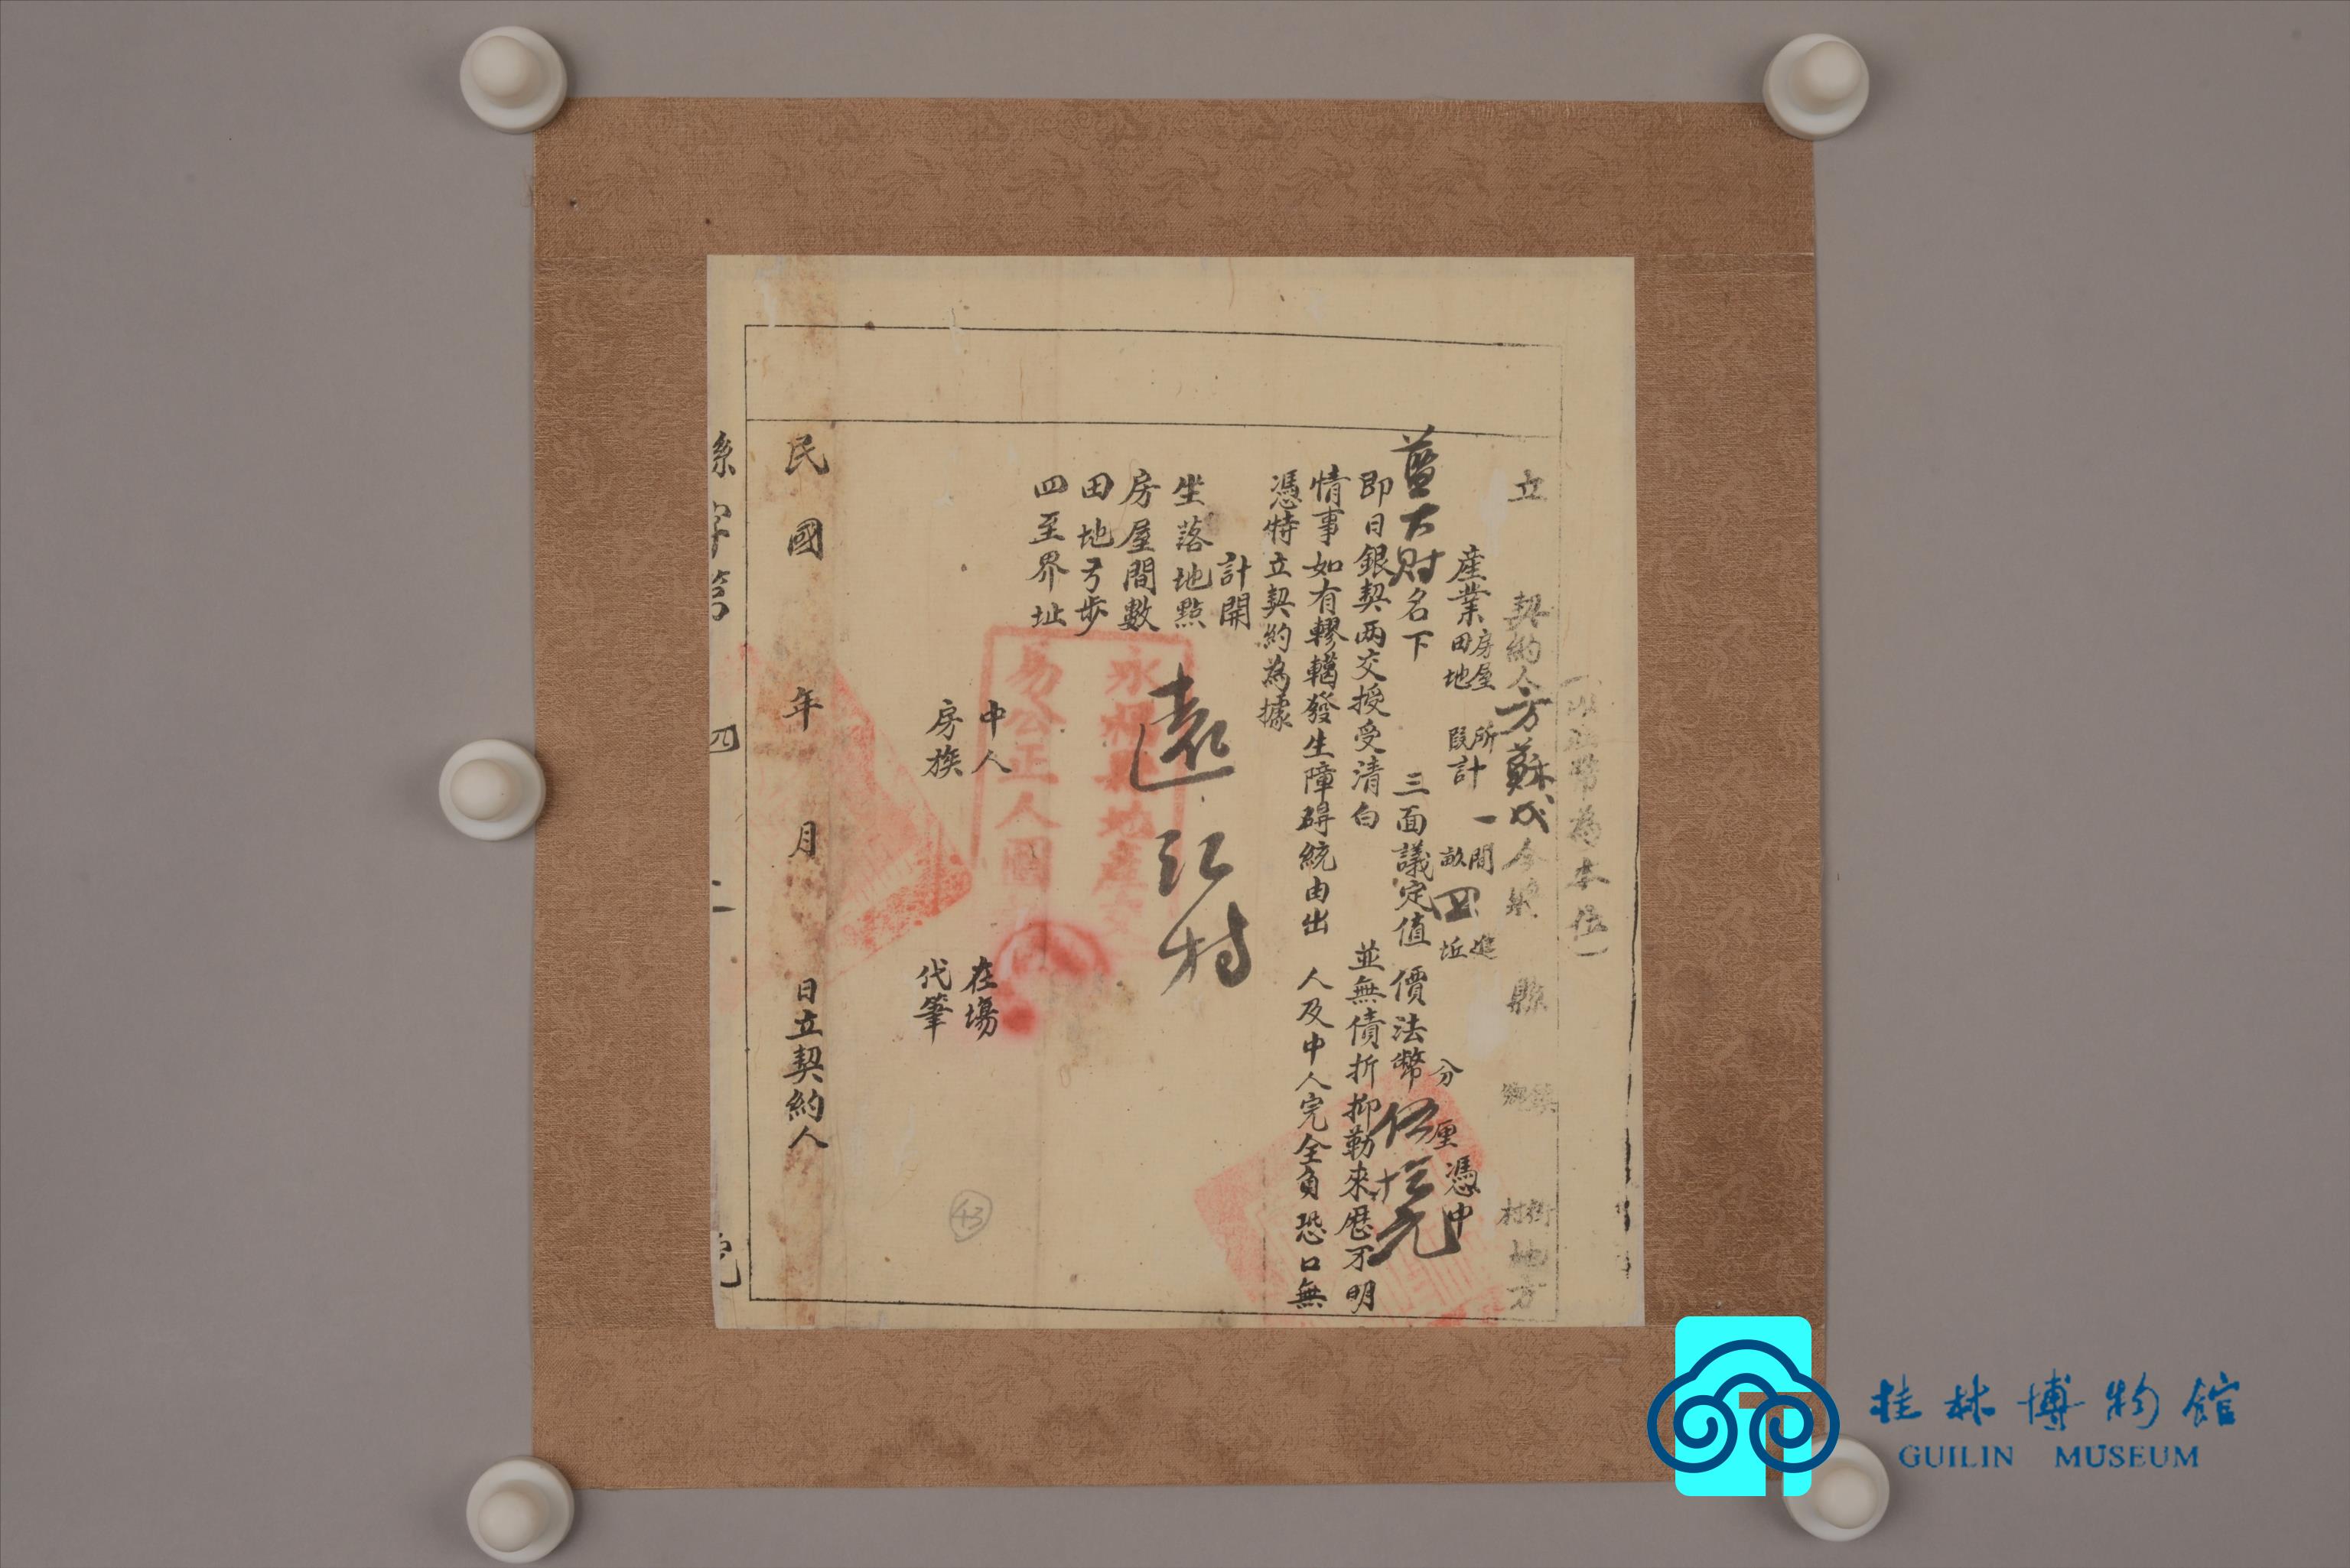 為本位）
立　契約人方蘇成今將　縣　鄉鎮　村街地方
產業房屋田地　所計段計　一間畝　四進坵　分　厘憑中
藍大財名下　三面議定值　價法幣伍拾元
即日銀契两交授受清白　並無債折抑勒來歷不明
情事如有轇轕發生障碍統由出　人及中人完全負　恐口無
憑特立契約為據
計開
坐落地點　遠江村
房屋間數
田地弓步
四至界址
永福縣地產交
易公正人圖
中人　在場
房族　代筆
民國　年　月　日立契約人
字第　四　二　號
43
桂林博物館
GUILIN MUSEUM